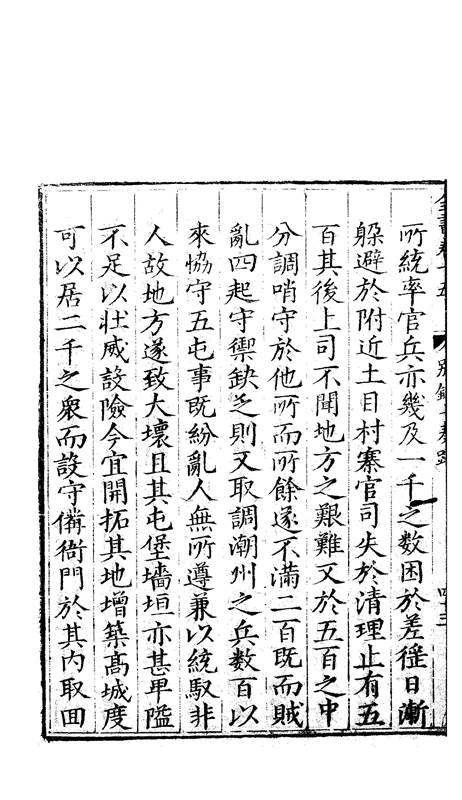 所統率官兵亦幾及一千之數困於差徭日漸
躱避於附近土目村寨官司失於清理止有五
百其後上司不聞地方之艱難又於五百之中
分調哨守於他所而所餘遂不滿二百既而賊
亂四起守禦缺乏則又取調潮州之兵數百以
來恊守五屯事既紛亂人無所遵兼以統馭非
人故地方遂致大壞且其屯堡墻垣亦甚卑隘
不足以壯威設險今宜開拓其地增築高城度
可以居二千之衆而設守備衙門於其内取回